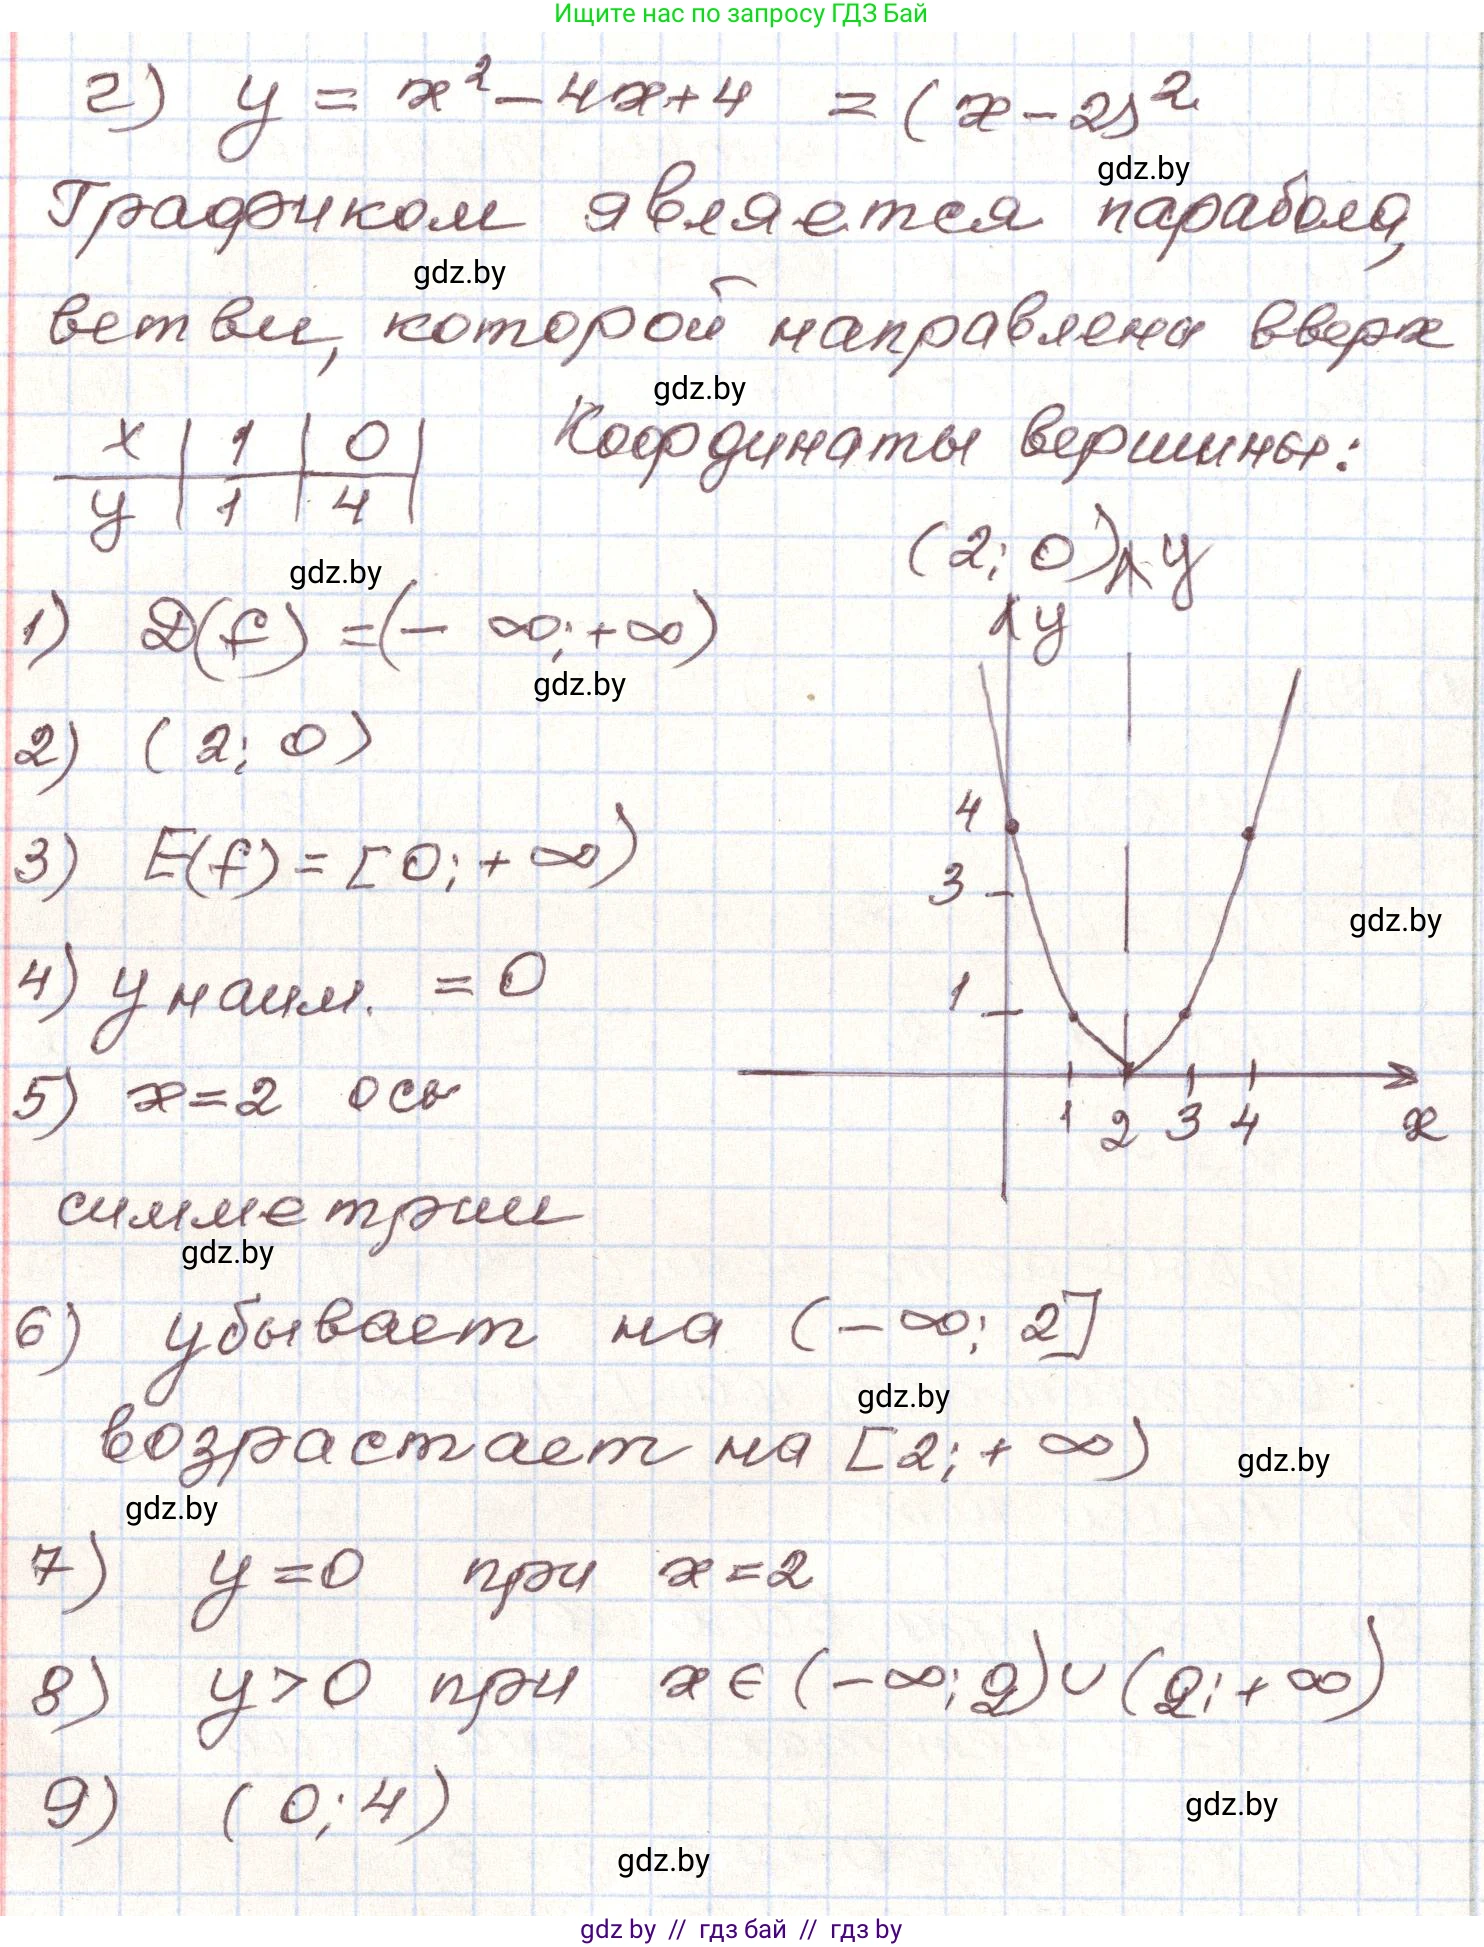 Ищите нас по запросу ГДЗ Бай
г) y = x² - 4x + 4 = (x - 2)²
gdz.by
Графиком является парабола,
gdz.by
ветви, которой направлены вверх
gdz.by
x | 1 | 0 |
y | 1 | 4 |
Координаты вершины:
(2; 0) y
gdz.by
1) D(f) = (- ∞; +∞)
gdz.by
2) (2; 0)
3) E(f) = [0; + ∞)
4) y наим. = 0
5) x = 2 ось
симметрии
gdz.by
y
4
3
gdz.by
1
1 2 3 4 x
6) убывает на (- ∞; 2]
gdz.by
возрастает на [2; + ∞)
gdz.by
gdz.by
7) y = 0 при x = 2
8) y > 0 при x ∈ (- ∞; 2) ∪ (2; + ∞)
9) (0; 4)
gdz.by
gdz.by
gdz by // гдз бай // гдз by